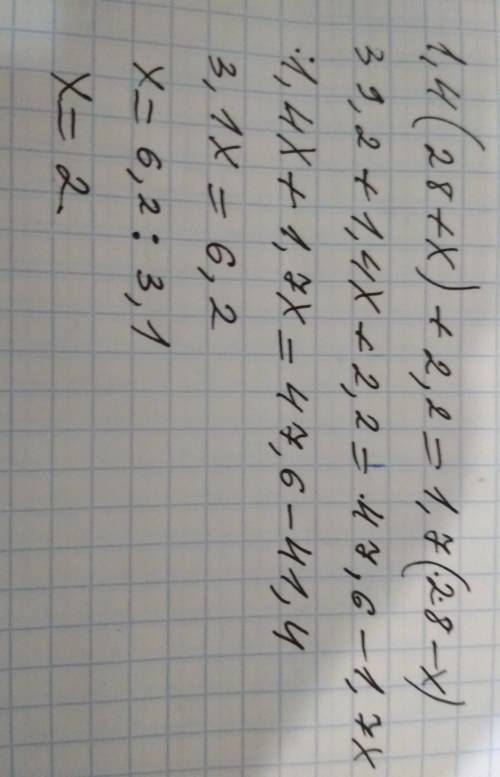 1,4(28+x)+2,2=1,7(28-x)
39,2+1,4x+2,2=47,6-1,7x
1,4x+1,7x=47,6-41,4
3,1x=6,2
x=6,2:3,1
x=2.